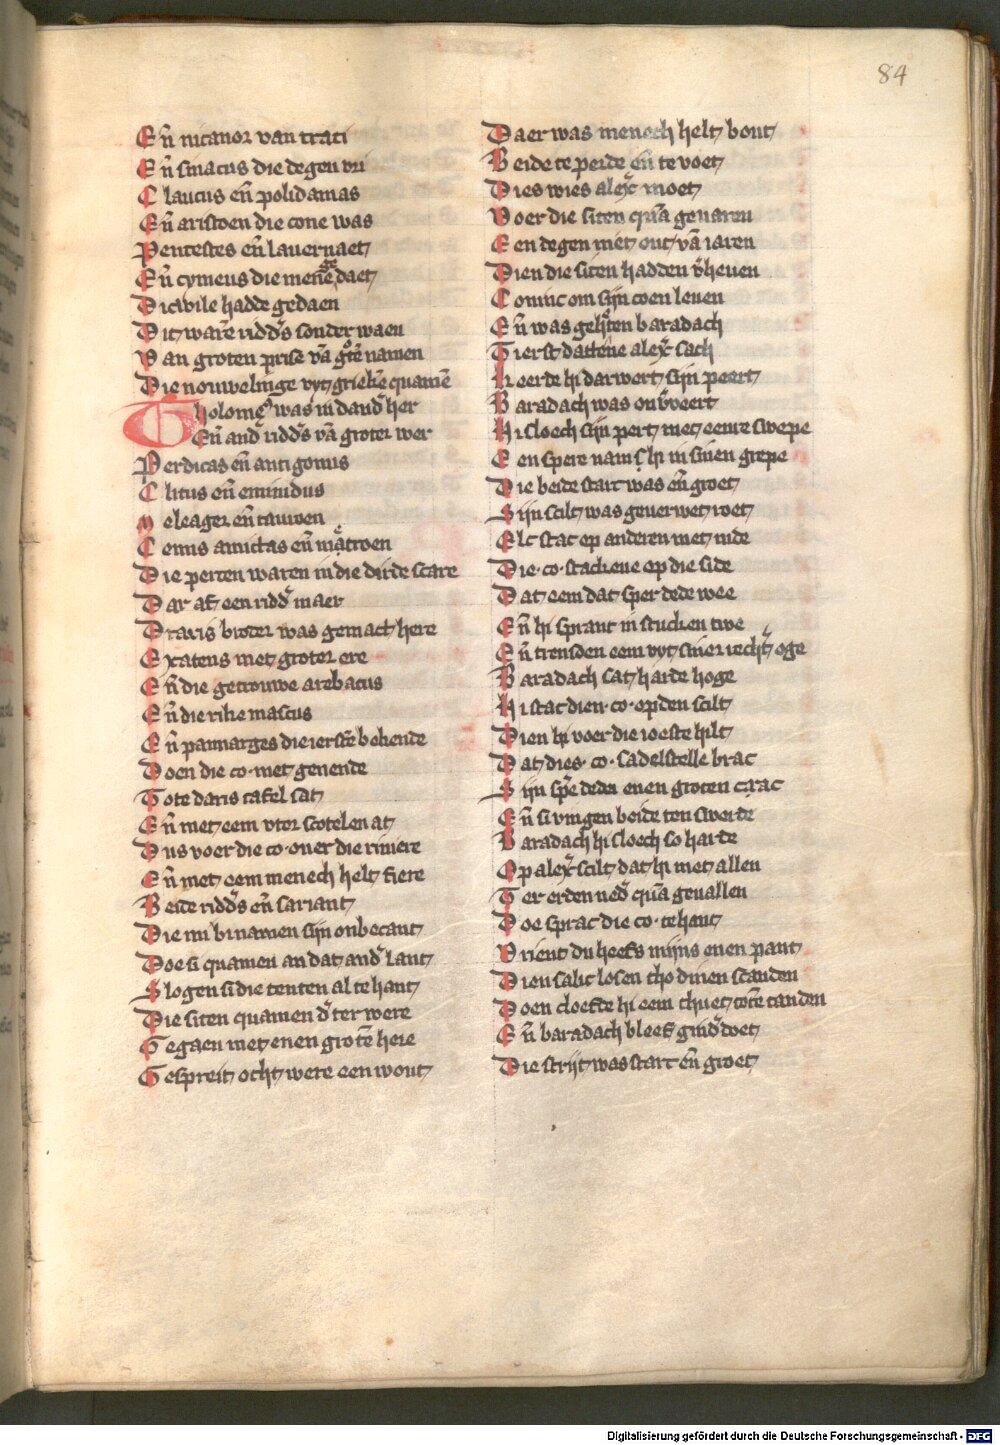 84
Eñ nicanor van traci
Eñ smacus die degen vri
Claucus eñ polidamas
Eñ aristoen die cone was
Pentestes eñ lauernaet
Eñ cymeus die menege daet
Dicwile hadde gedaen
Dit warē ridd's sonder waen
Van groten prise vā grotē namen
Die nouwelinge vyt griekē quamē
Tholome9 was in dand' her
Eñ and' ridd's vā groter wer
Perdicas eñ antigonus
Clitus eñ eminidus
Meleager eñ cauwen
Cenus amictas eñ
Die perten waren in die dirde scare
Dar af een ridd' maer
Draxis broder was gemach here
Exatens met groter ere
Eñ die getrouwe arebacus
Eñ die rike mascus
Eñ pannarges die ierstē behende
Doen die co· met genende
Tote daris tafel sat
Eñ met eem vter scotelen at
Dus voer die co· ouer die riuiere
Eñ met eem menech helt fiere
Beide ridd's eñ sariant
Die mi bi namen sijn onbecant
Doe si quamen an dat and' lant
Slogen si die tenten al te hant
Die siten quamen d' ter were
Tegaen met enen grotē here
Gespreit ocht were een wout
Daer was menech helt bout
Beide te perde eñ te voet
Dies wies alex' moet
Voer die siten quā geuaren
Een degen met out vā iaren
Dien die siten hadden v'heuen
Coninc om sijn coen leuen
Eñ was geh'ten baradach
Tierst dattene alex' sach
Keerde hi darwert sijn peert
Baradach was onv'veert
Hi sloech sijn pert met eenre swepe
Een spere nam hi in sinen grepe
Die beide starc was eñ groet
Sijn scilt was geuerwet roet
Elc stac op anderen met nide
Die ·co· stacheue op die side
Dat eem dat sper dede wee
Eñ hi spranc in stucken twe
Eñ trensden eem vyt sinen rechtē oge
Baradach sat harde hoge
Hi stac dien ·co· op den scilt
Dien hi voer die ioeste hilt
Dat dies ·co· sadelstelle brac
Sijn spē deden enen groten crac
Eñ si vingen beide ten swerde
Baradach hi sloech so harde
Op alex' scilt dat hi met allen
Ter erden ned' quā geuallen
Doe sprac die co· te hant
Vrient du heefs mijns enen pant
Dien salic losen tho dinen scanden
Doen cloefde hi eem thuet totē tanden
Eñ baradach bleef gind' doet
Die strijt was starc eñ groet
Digitalisierung gefördert durch die Deutsche Forschungsgemeinschaft - DFG